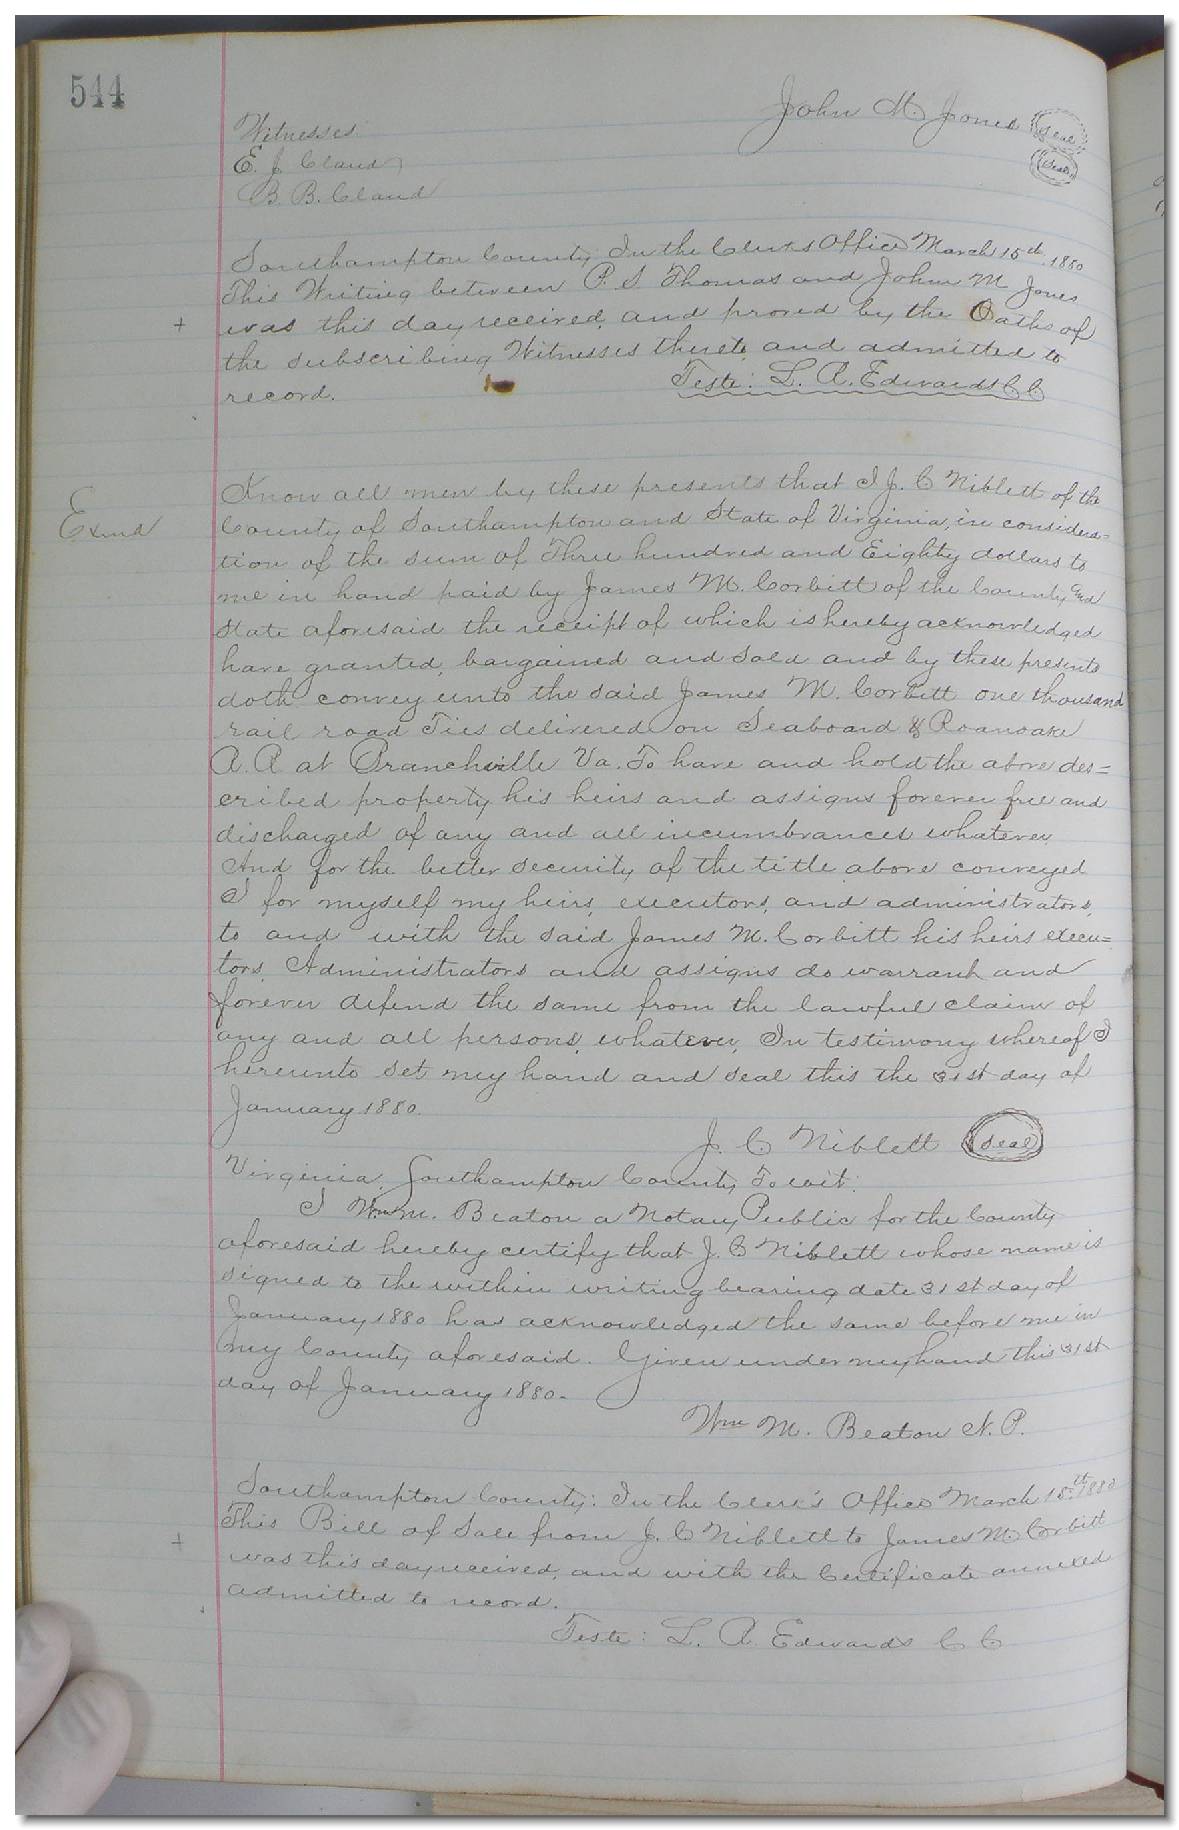 544
John M. Jones (seal)
(seal)
Witnesses
E. J. Claud
B. B. Claud
Southampton County, In the Clerks Office March 15th 1880
This Writing between P. S Thomas and John M Jones
was this day received, and proved by the Oaths of
the subscribing Witnesses thereto and admitted to
record.
Teste: L. R. Edwards C C
Exmd
Know all men by these presents that I J. C Niblett of the
County of Southampton and State of Virginia, in considera=
tion of the sum of Three hundred and Eighty dollars to
me in hand paid by James M. Corbitt of the County and
State aforesaid the receipt of which is hereby acknowledged
have granted, bargained and sold and by these presents
doth convey unto the said James M. Corbitt one thousand
rail road Ties delivered on Seaboard & Roanoake
R. R at Branchville Va. To have and hold the above des=
cribed property, his heirs and assigns forever free and
discharged of any and all incumbrances whatever,
And for the better security of the title above conveyed
I for myself my heirs, executors, and administrators,
to and with the said James M. Corbitt his heirs execu=
tors, Administrators and assigns do warrant and
forever defend the same from the lawful claim of
any and all persons, whatever, In testimony whereof I
hereunto set my hand and seal this the 31st day of
January 1880.
J. C Niblett (seal)
Virginia, Southampton County, To wit:
I Wm M. Beaton a Notary Public for the County
aforesaid hereby certify that J. C Niblett whose name is
signed to the within writing bearing date 31st day of
January 1880 has acknowledged the same before me in
my County aforesaid. Given under my hand this 31st
day of January 1880.
Wm M. Beaton N. P.
Southampton County: In the Clerk's Office March 15th 1880
This Bill of Sale from J. C Niblett to James M. Corbitt
was this day received, and with the Certificate annexed
admitted to record.
Teste: L. R. Edwards C C